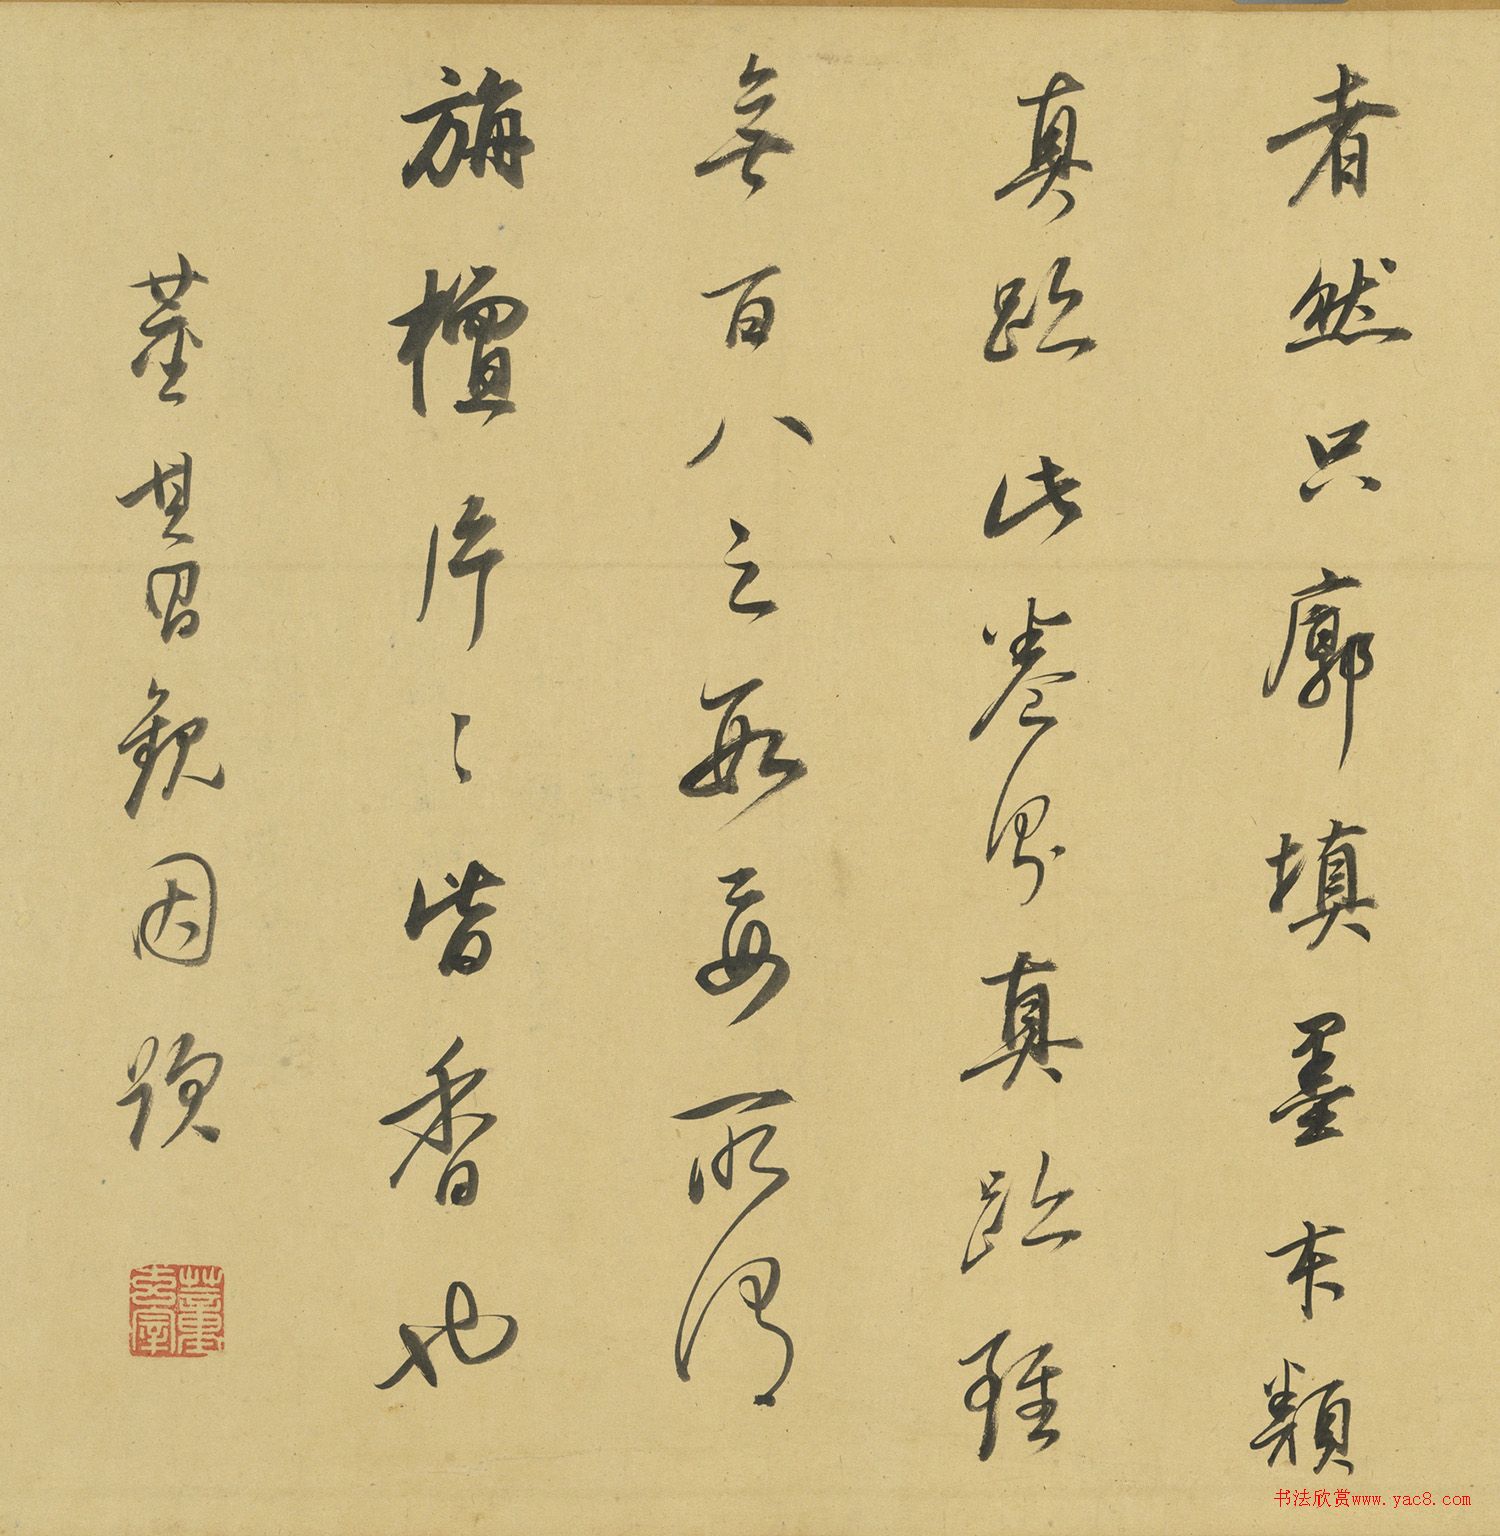 者然只廓填墨本類
真跡此卷為真真跡雖
無百八之數要所謂
旃檀片〻皆香也
董其昌觀因題
董玄宰
书法欣赏www.yac8.com